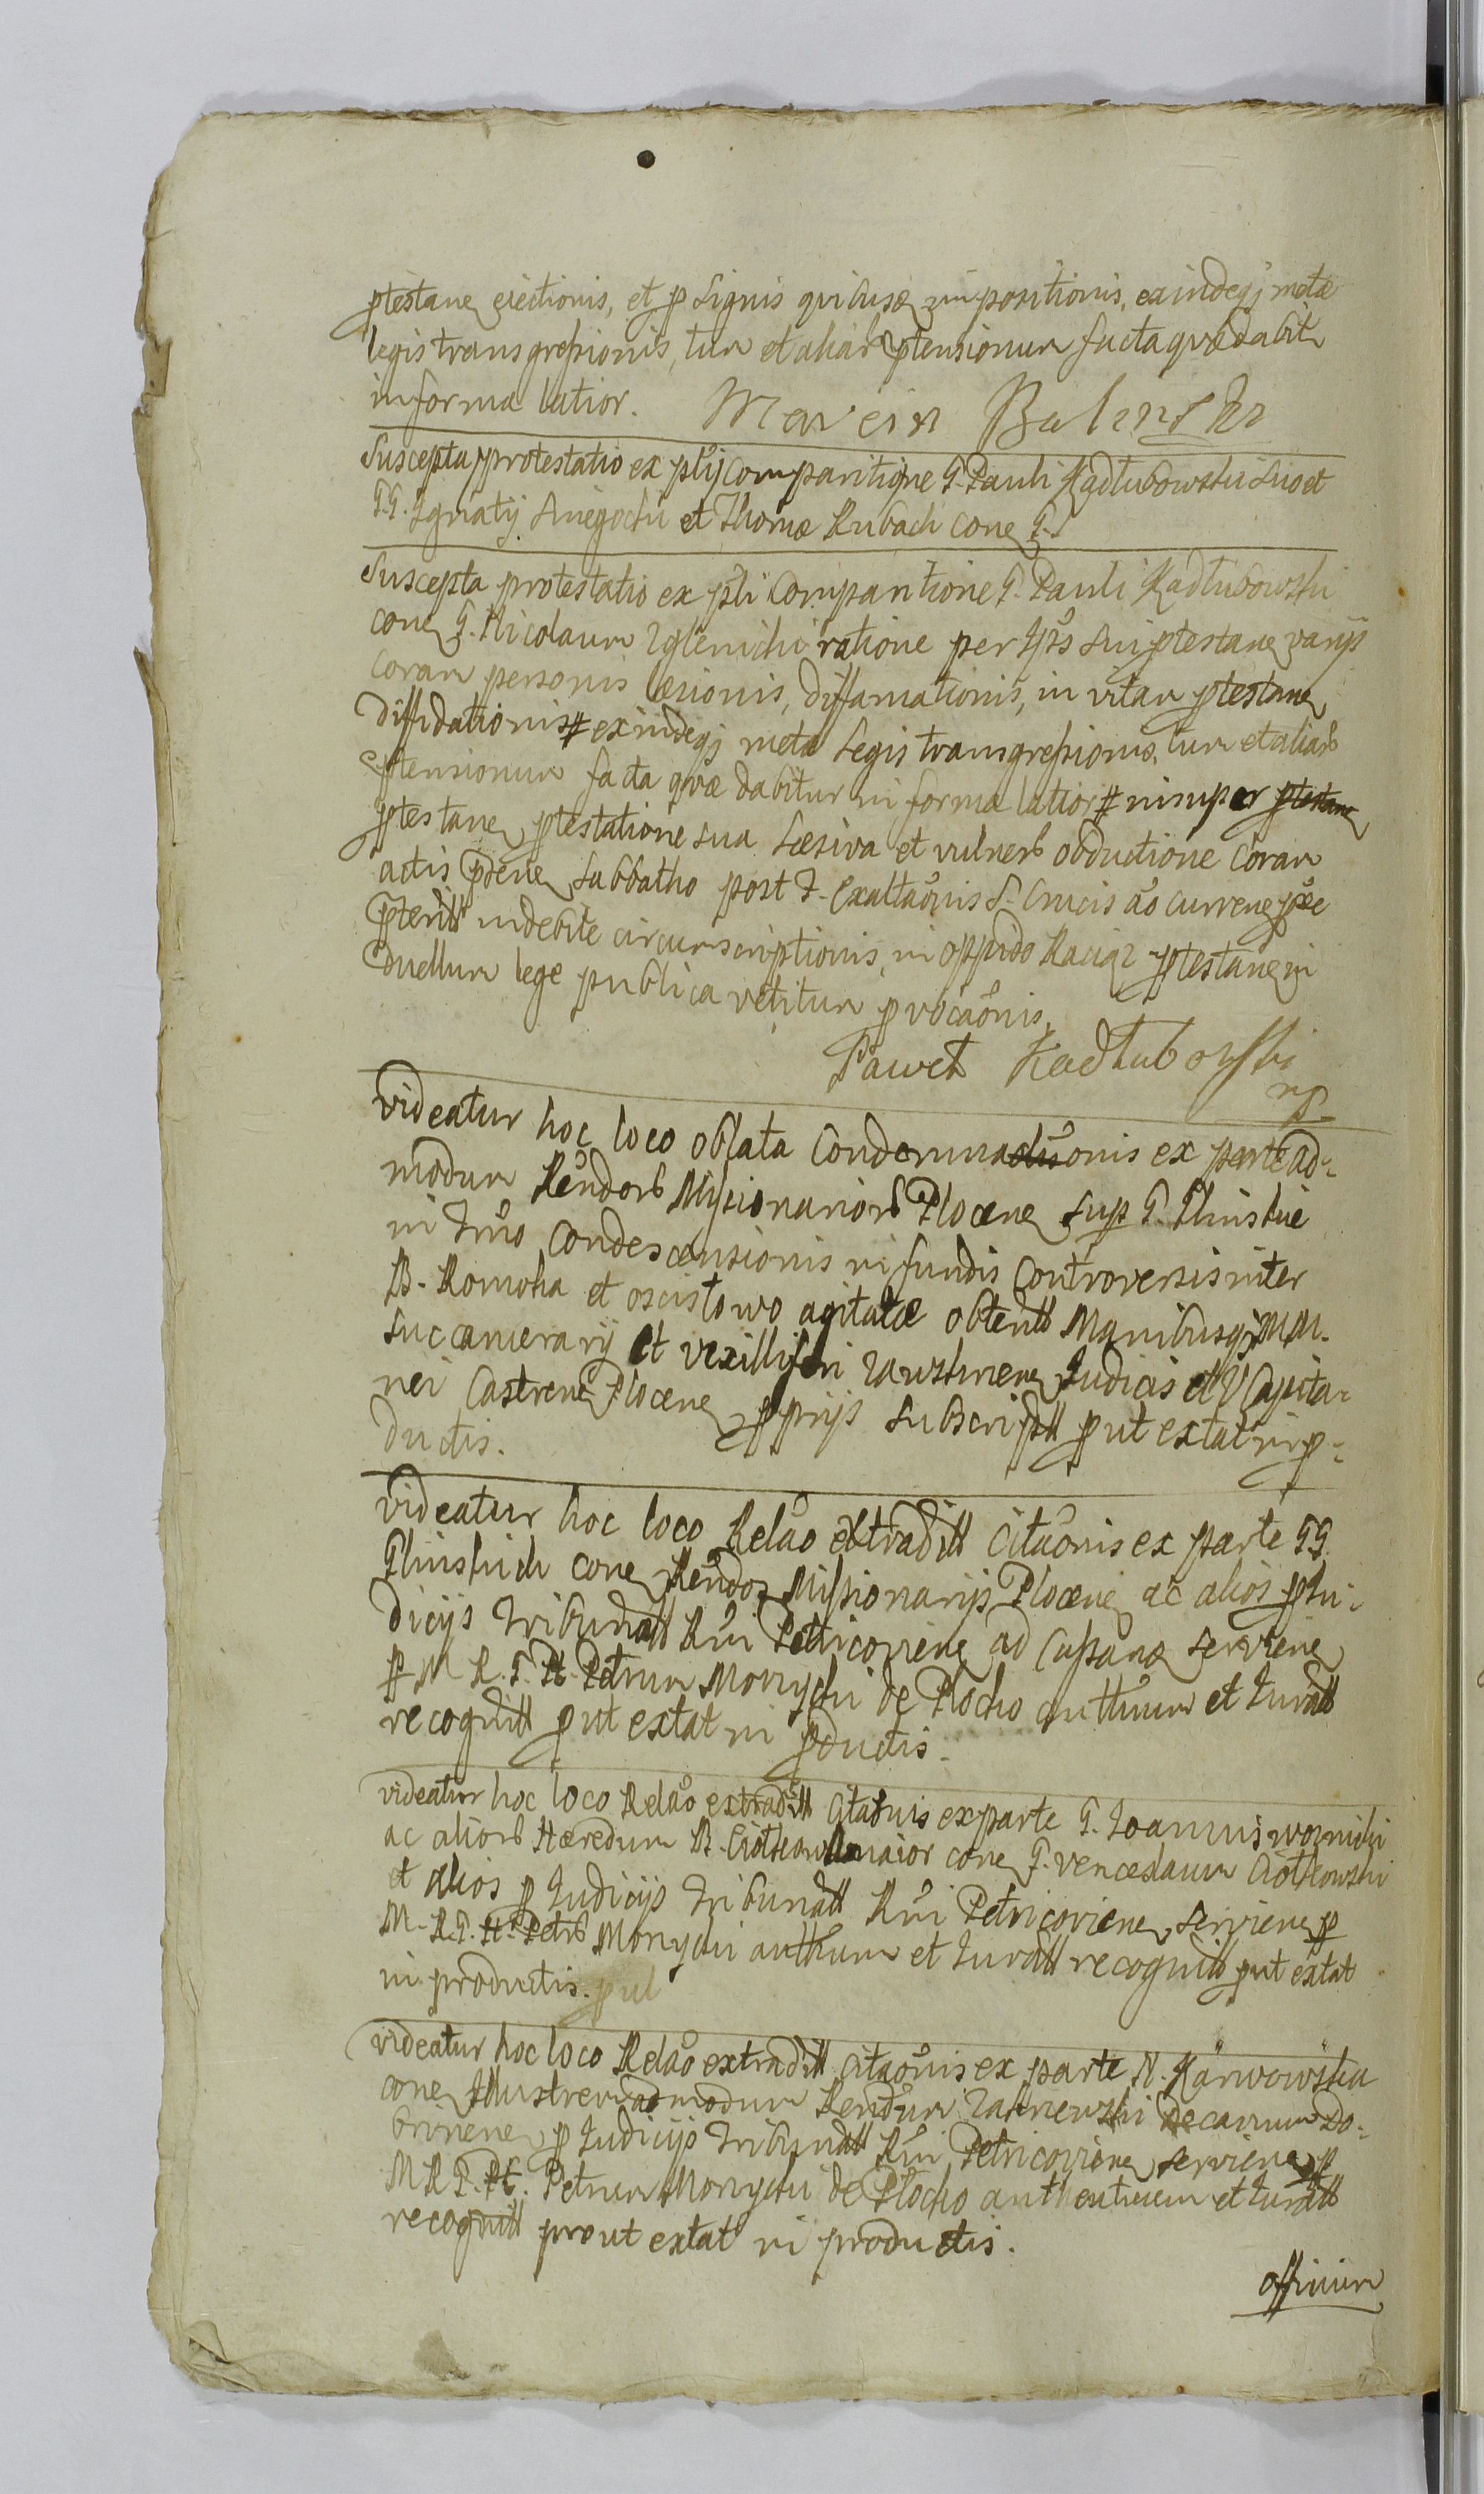 ptestane eiectionis, et p Lignis quibusq impositionis, exindeqj metæ
legis transgressionis, tum et aliarb ptensionum facta quæ dabit
in forma latior. Marcin Balinski
Suscepta protestatio ex psli comparitione G. Pauli Kadłubowski suo et
GG. Ignatij Sniegocki et Thomæ Rubach cone G.
Suscepta protestatio ex psli Comparitione G. Pauli Kadłubowski
cone G. Nicolaum Zglenicki ratione per Ips sui ptestane varijs
coram personis læsionis, diffamationis, in vitam ptestane
diffidationis # exindeqj metæ Legis transgressionis, tum et aliarb
ptensionum facta quæ dabitur in forma latior # insuper ptestane
ptestane ptestatione sua Læsiva et vulnerb obductione coram
actis pdene Sabbatho post F. Exaltaōnis S. Crucis aō currene
indebite circumscriptionis, in oppido Raciąz ptestane in
duellum lege publica vetitum pvocaōnis.
Paweł Kadłubowski
mp
videatur hoc loco oblata Condemnaōnis ex parte ad-
modum Rendorb Missionariorb Plocene sup G. Glinskie
in Trno Condescensionis in fundis Controversis inter
B. Romoka et oscisłowo agitatæ obtentt Manibusqj MM.
Succamerarij et vexilliferi Zawskrnene Judicis et V Capita-
nei Castrene Plocene pprijs subscriptt put extat in p-
ductis.
videatur hoc loco Relāo extraditt Citaōnis ex parte GG.
Glinskich cone Rendos Missionarijs Plocene ac alios p Iu-
dicijs Tribunatt Rni Petricoviene ad Cassane serviene
p M R. G. H. Petrum Morzycki de Plocko autthum et Iuratt
recognitt put extat in pductis.
videatur hoc loco Relāo extraditt Citatnis ex parte G. Joannis woznicki
ac aliorb Hæredum B. Ciołkowo maior cone G. venceslaum Ciołkowski
et alios p Iudicijs Tribunatt Rni Petricoviene, serviene p
M. R. G. H. Petrb Morzycki autthum et Iuratt recognitt put extat
in productis. put
videatur hoc loco Relāo extraditt Citaōnis ex parte N. Karwowska
cone Illustrem admodum Rendum Zalinewski Decanum Do-
brinene p Iudicijs Tribunatt Rni Petricoviene serviene p
M R G. H. Petrum Morzycki de Plocko authenticum et Iuratt
recognitt prout extat in productis.
officium